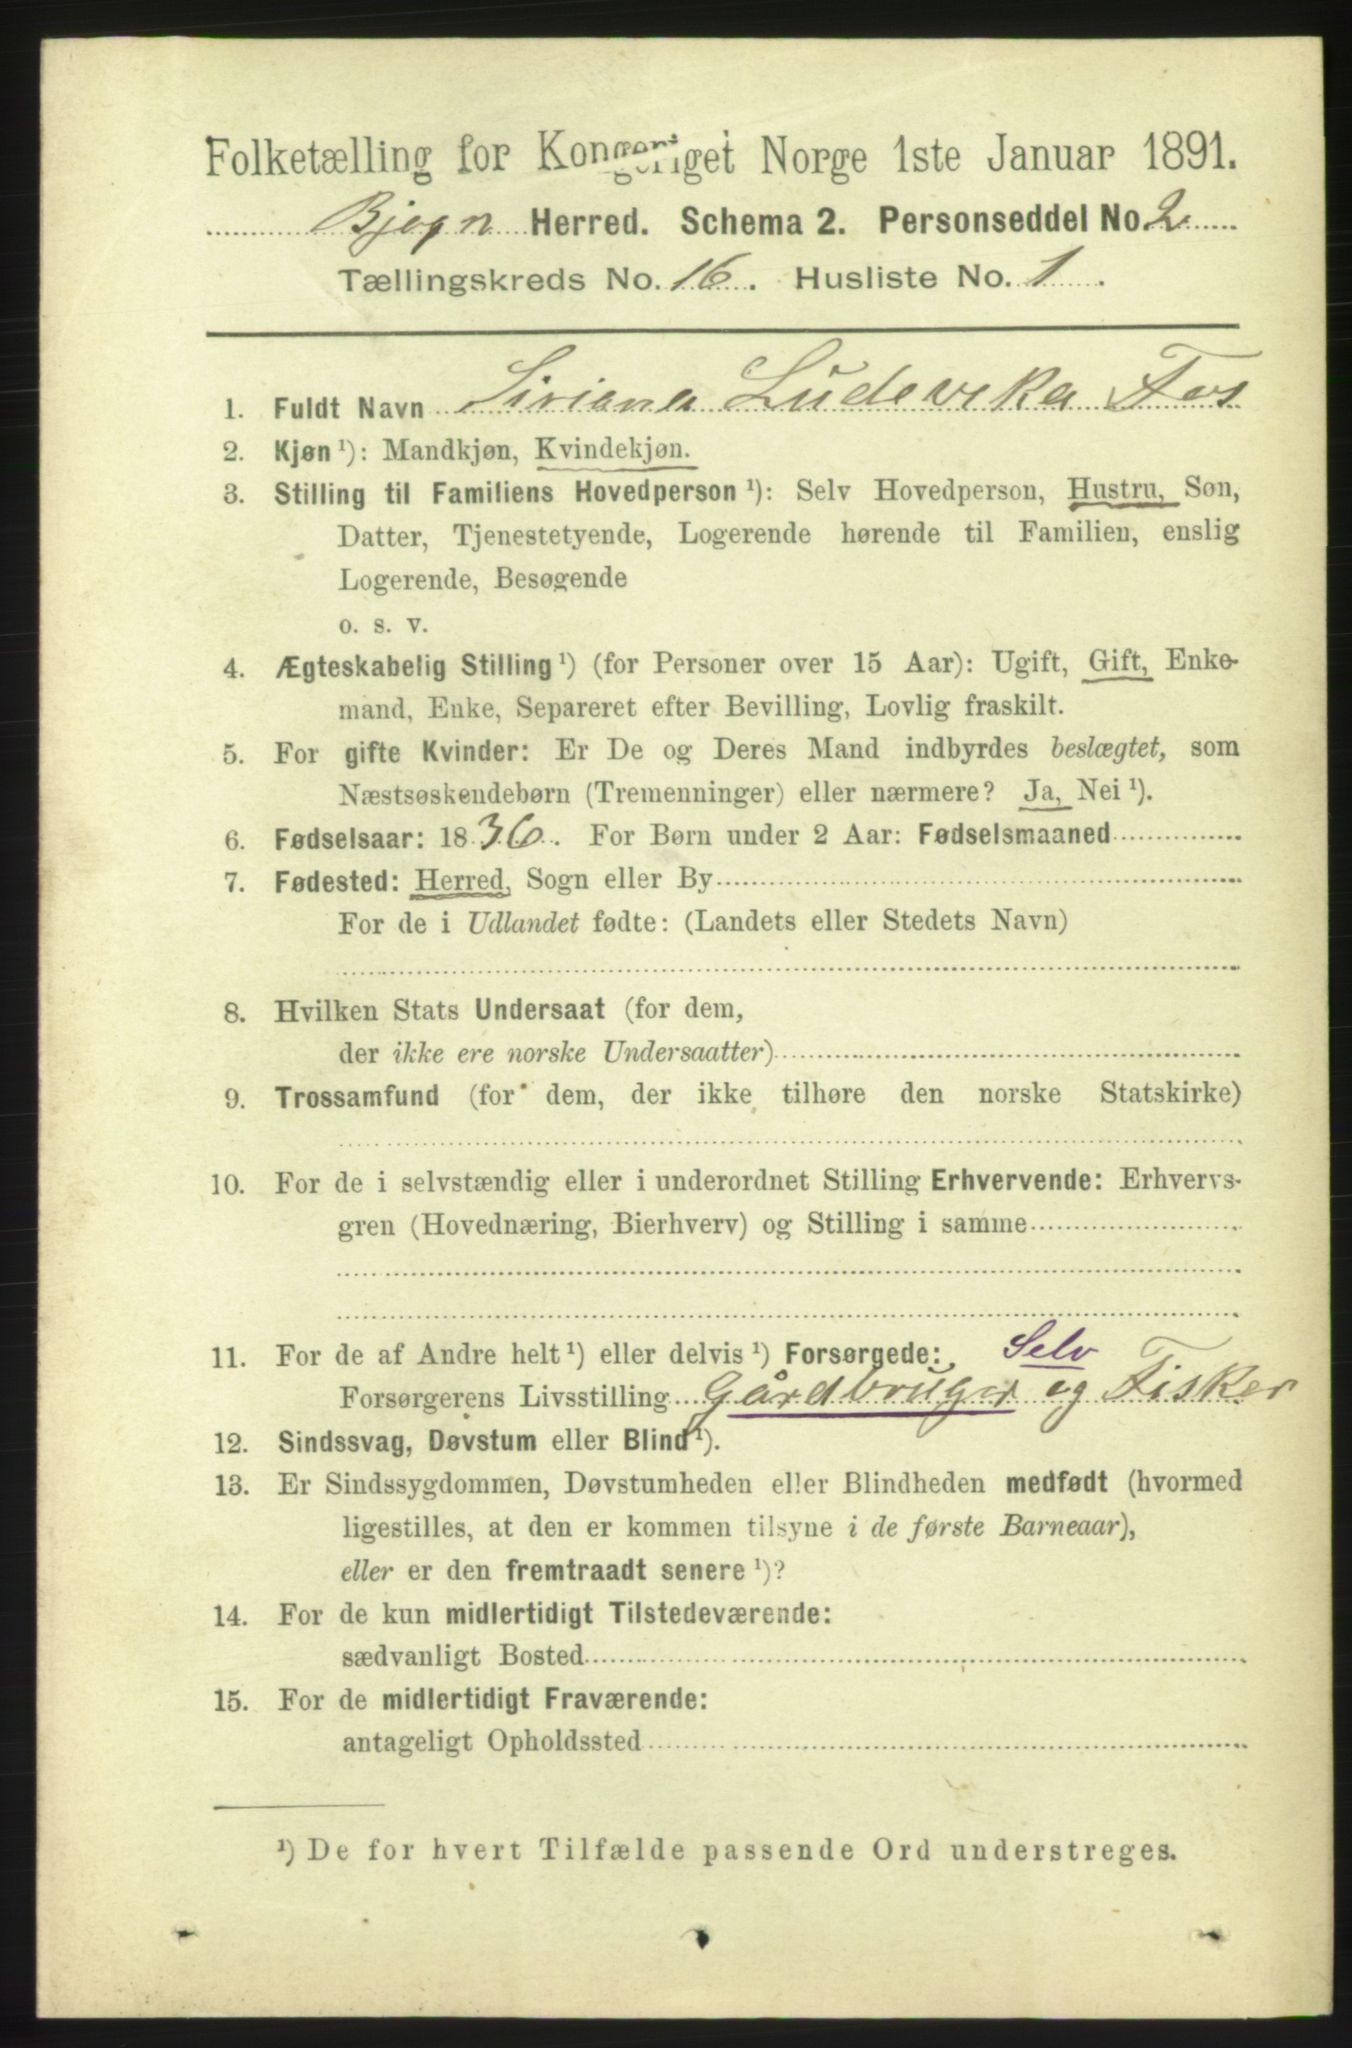 Folketælling for Kongeriget Norge 1ste Januar 1891.
Bjogn Herred. Schema 2. Personseddel No. 2
Tællingskreds No. 16. Husliste No. 1.
1. Fuldt Navn Siriana Ludevika Fos
2. Kjøn ¹): Mandkjøn, Kvindekjøn.
3. Stilling til Familiens Hovedperson ¹): Selv Hovedperson, Hustru, Søn,
Datter, Tjenestetyende, Logerende hørende til Familien, enslig
Logerende, Besøgende
o. s. v.
4. Ægteskabelig Stilling ¹) (for Personer over 15 Aar): Ugift, Gift, Enke-
mand, Enke, Separeret efter Bevilling, Lovlig fraskilt.
5. For gifte Kvinder: Er De og Deres Mand indbyrdes beslægtet, som
Næstsøskendebørn (Tremenninger) eller nærmere? Ja, Nei ¹).
6. Fødselsaar: 1836. For Børn under 2 Aar: Fødselsmaaned
7. Fødested: Herred, Sogn eller By
For de i Udlandet fødte: (Landets eller Stedets Navn)
8. Hvilken Stats Undersaat (for dem,
der ikke ere norske Undersaatter)
9. Trossamfund (for dem, der ikke tilhøre den norske Statskirke)
10. For de i selvstændig eller i underordnet Stilling Erhvervende: Erhvervs-
gren (Hovednæring, Bierhverv) og Stilling i samme
11. For de af Andre helt ¹) eller delvis ¹) Forsørgede: Selv
Forsørgerens Livsstilling Gårdbruger og Fisker
12. Sindssvag, Døvstum eller Blind ¹).
13. Er Sindssygdommen, Døvstumheden eller Blindheden medfødt (hvormed
ligestilles, at den er kommen tilsyne i de første Barneaar),
eller er den fremtraadt senere ¹)?
14. For de kun midlertidigt Tilstedeværende:
sædvanligt Bosted
15. For de midlertidigt Fraværende:
antageligt Opholdssted
¹) De for hvert Tilfælde passende Ord understreges.